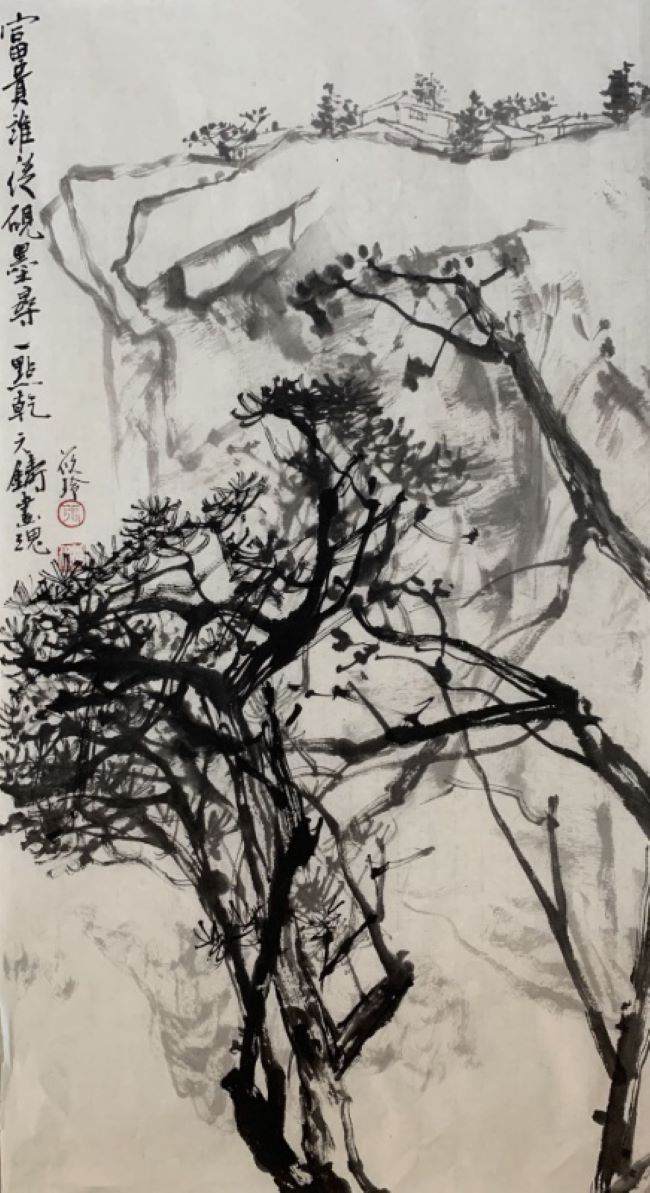 富貴誰從硯墨尋一點乾元鑄畫魂
筱玲